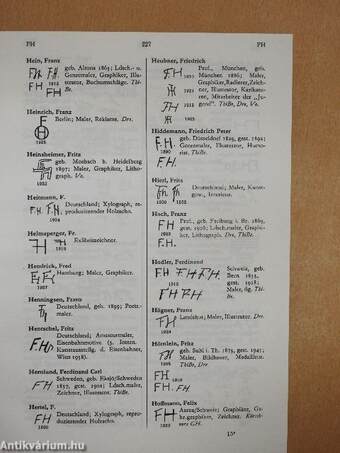 FH 227 FH
Hein, Franz
geb. Altona 1863; Ldsch.- u.
Genremaler, Graphiker, Illu-
strator, Buchumschläge. ThBr,
Drs.
Heinrich, Franz
Berlin; Maler, Reklame. Drs.
Heinsheimer, Fritz
geb. Mosbach b. Heidelberg
1897; Maler, Graphiker, Litho-
graph. Vo.
Heitmann, F.
Deutschland; Xylograph, re-
produzierender Holzschn.
Helmsperger, Fr.
Exlibriszeichner.
Hendrich, Fred
Hamburg; Maler, Graphiker.
Henningsen, Frans
Deutschland, geb. 1899; Poetz-
maler.
Hentschel, Fritz
Deutschland; Amateurmaler,
Eisenbahnmotive (5. Intern.
Kunstausstlg. d. Eisenbahner,
Wien 1958).
Hernlund, Ferdinand Carl
Schweden, geb. Eksjö/Schweden
1837, gest. 1902; Ldsch.maler,
Zeichner, Illustrator. ThBr.
Hertel, F.
Deutschland; Xylograph, repro-
duzierender Holzschn.
Heubner, Friedrich
Prof., München, geb.
München 1886; Maler,
Graphiker, Radierer, Zeich-
ner, Illustrator, Karikatu-
rist, Mitarbeiter der „Ju-
gend". ThBr, Drs, Vo.
Hiddemann, Friedrich Peter
geb. Düsseldorf 1829, gest. 1892;
Genremaler, Illustrator, Humo-
rist. ThBr.
Hierl, Fritz
Deutschland; Maler, Kunst-
gew., Interieur.
Hoch, Franz
Prof., geb. Freiburg i. Br. 1869,
gest. 1916; Ldsch.maler, Graphi-
ker, Lithograph. Drs, ThBr.
Hodler, Ferdinand
Schweiz, geb.
Bern 1853,
gest. 1918;
Maler, fig. Th-
Br.
Högner, Franz
Landshut; Maler, Illustrator. Drs.
Hörnlein, Fritz
geb. Suhl i. Th. 1873, gest. 1945;
Maler, Bildhauer, Medailleur.
ThBr, Drs
Hoffmann, Felix
Aarau/Schweiz; Graphiker, Ge-
brauchsgraphiker, Zeichner. Künst-
lers GH.
15*
Antikvárium.hu